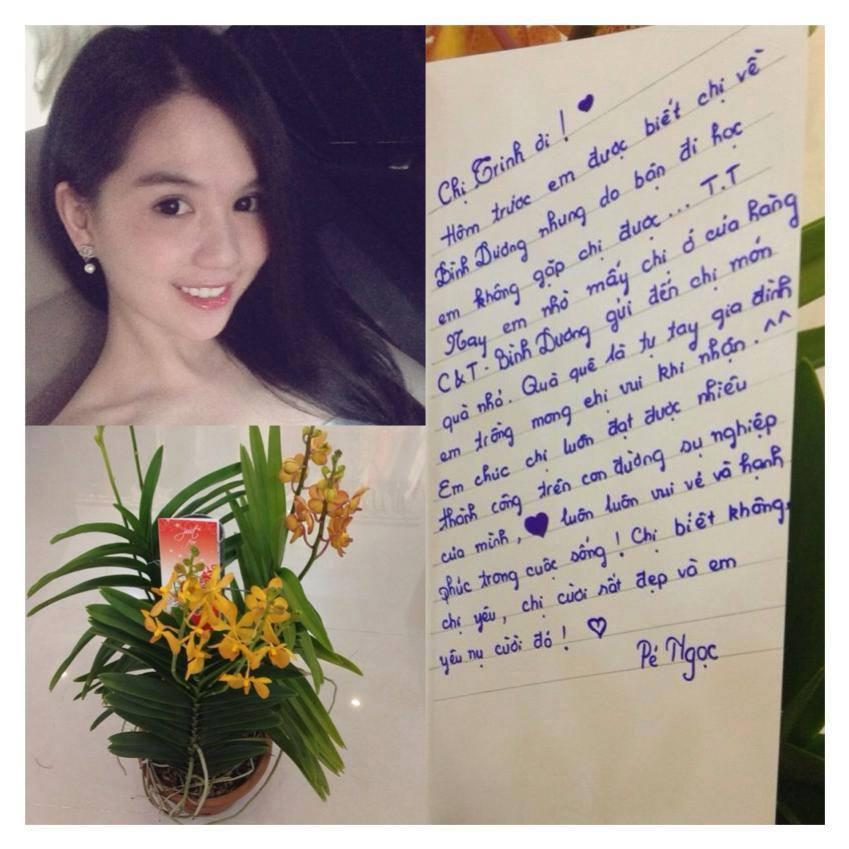 Chị Trinh ơi !
Hôm trước em được biết chị về
Bình Dương nhưng do bận đi học
em không gặp chị được... T.T
Nay em nhờ mấy chị ở cửa hàng
C&T - Bình Dương gửi đến chị món
quà nhỏ. Quà quê là tự tay gia đình
em trồng mong chị vui khi nhận. ^^
Em chúc chị luôn đạt được nhiều
thành công trên con đường sự nghiệp
của mình, luôn luôn vui vẻ và hạnh
phúc trong cuộc sống ! Chị biết không,
chị yêu, chị cười rất đẹp và em
yêu nụ cười đó !
Pé Ngọc
just